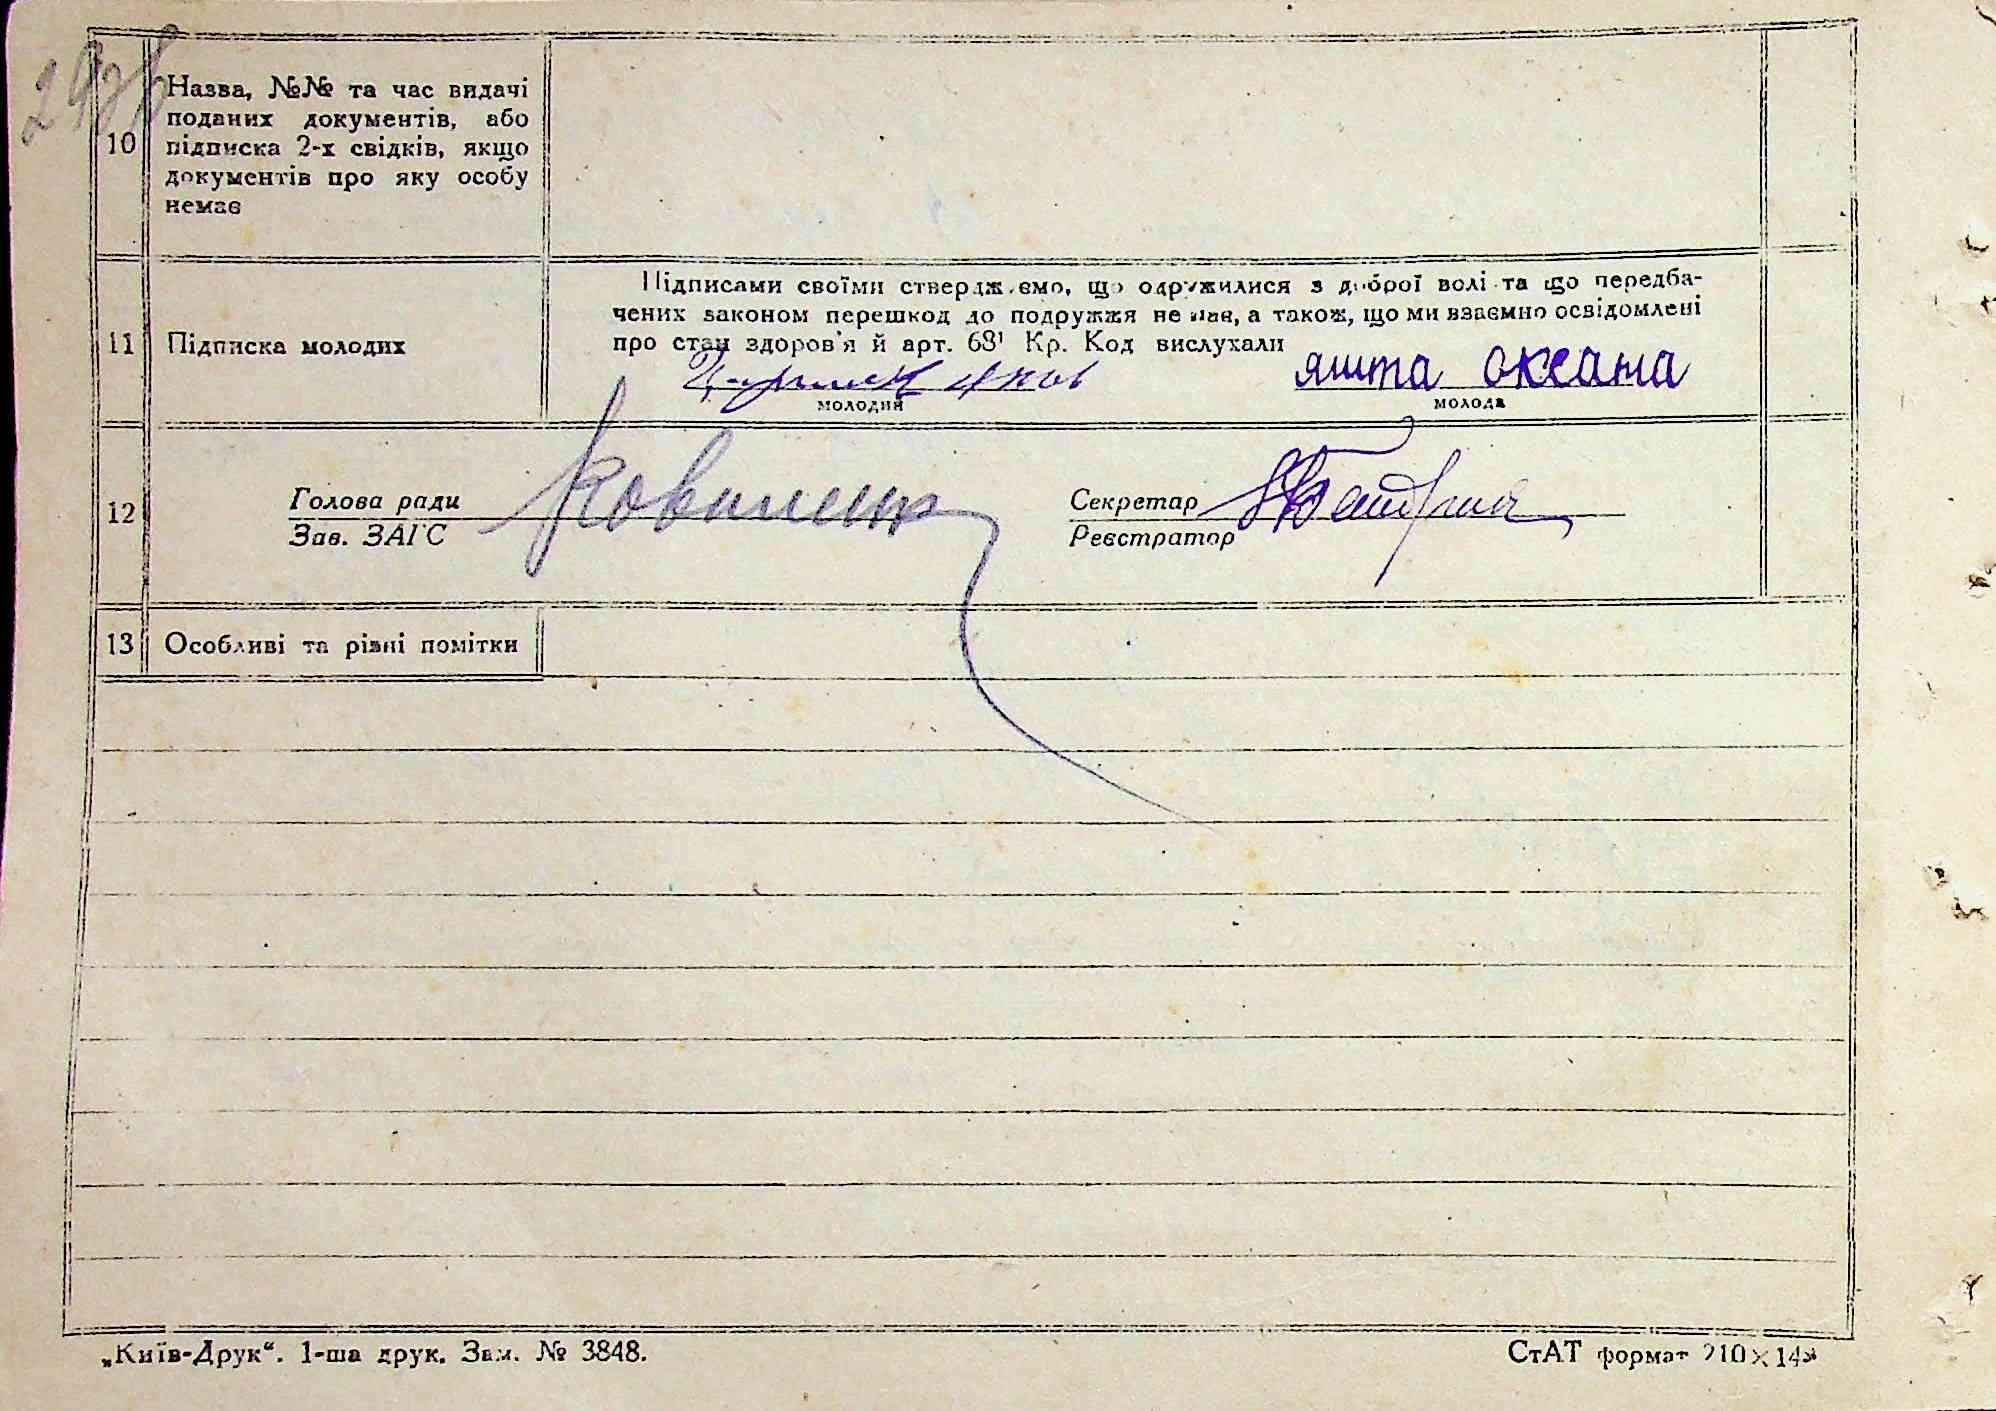 10
Назва, №№ та час видачі
поданих документів, або
підписка 2-х свідків, якщо
документів про яку особу
немає
11
Підписка молодих
Підписами своїми стверджуємо, що одружилися з доброї волі та що передба-
чених законом перешкод до подружжя не має, а також, що ми взаємно освідомлені
про стан здоров'я й арт. 68¹ Кр. Код вислухали
Яшта Оксана
молодий
молода
12
Голова ради
Зав. ЗАГС
Секретар
Реєстратор
13
Особливі та різні помітки
„Київ-Друк“. 1-ша друк. Зам. № 3848.
СтАТ формат 210×14